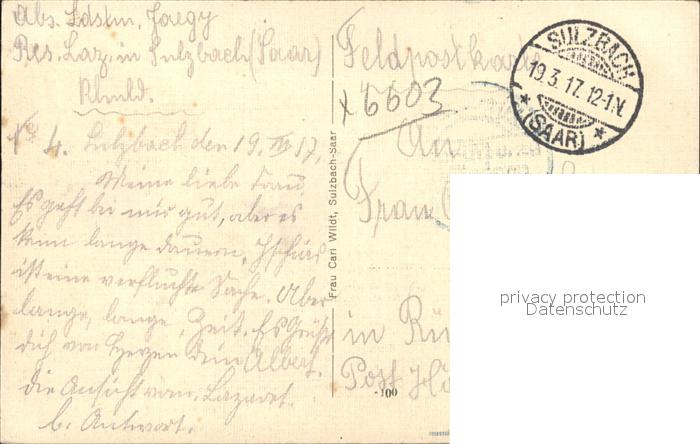 Abs. Ldstm. Jaegy
Res. Laz. in Sulzbach (Saar)
Rhnld.
Nº 4. Sulzbach den 19. III 17.
Meine liebe Frau,
Es geht bei mir gut, aber es
kann lange dauern, Ischias
ist eine verfluchte Sache. Aber
lange, lange Zeit. Es Grüßt
dich von Herzen dein Albert.
die Ansicht vom Lazaret.
b. Antwort.
Frau Carl Wildt, Sulzbach-Saar
Feldpostkarte
x 6603
SULZBACH
19.3.17. 12-1.V.
* (SAAR) *
An
Frau
in
Post
-100
privacy protection
Datenschutz